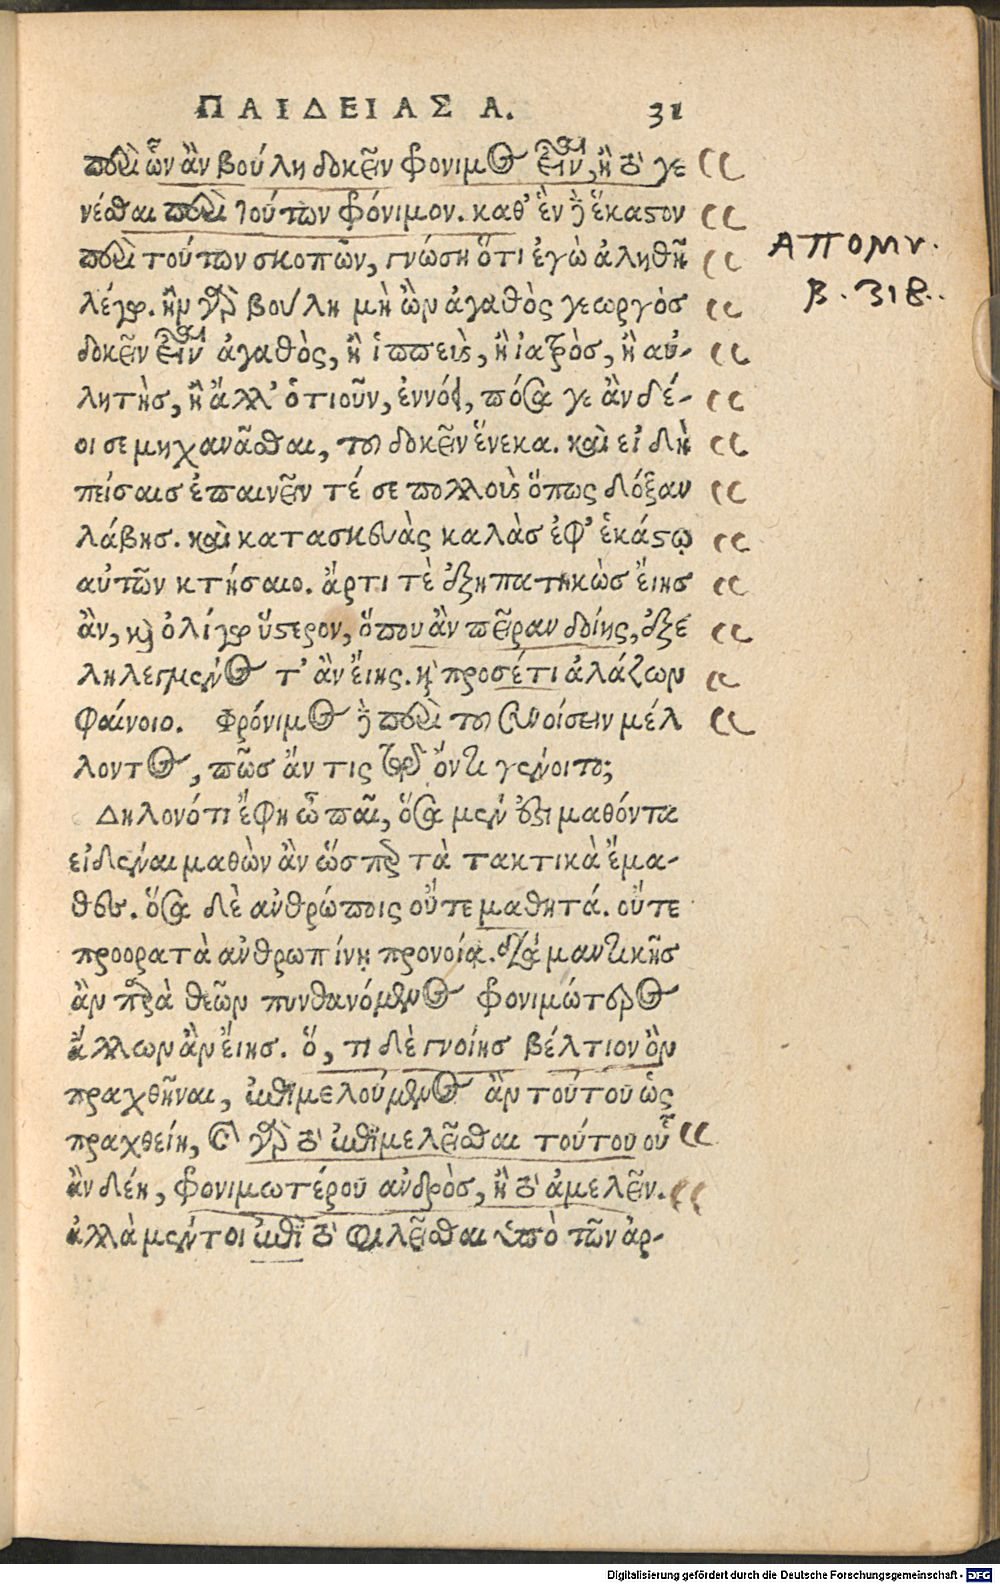 ΠΑΙΔΕΙΑΣ Α. 31
περὶ ὧν ἂν βούλῃ δοκεῖν φρόνιμος εἶναι, ἢ τὸ γε
νέσθαι περὶ τούτων φρόνιμον. καθ' ἓν δὲ ἕκαστον
περὶ τούτων σκοπῶν, γνώσῃ ὅτι ἐγὼ ἀληθῆ
λέγω. ἢν γὰρ βούλῃ μὴ ὢν ἀγαθὸς γεωργὸς
δοκεῖν εἶναι ἀγαθὸς, ἢ ἱππεὺς, ἢ ἰατρὸς, ἢ αὐ-
λητὴς, ἢ ἄλλ' ὁτιοῦν, ἐννόει, πόσα γε ἂν δέ-
οι σε μηχανᾶσθαι, τοῦ δοκεῖν ἕνεκα. καὶ εἰ δὴ
πείσαις ἐπαινεῖν τέ σε πολλοὺς ὅπως δόξαν
λάβῃς. καὶ κατασκευὰς καλὰς ἐφ' ἑκάστῳ
αὐτῶν κτήσαιο. ἄρτι τὲ ἐξηπατηκὼς εἴης
ἂν, καὶ ὀλίγῳ ὕστερον, ὅπου ἂν πεῖραν δοίης, ἐξε
ληλεγμένος τ' ἂν εἴης. καὶ προσέτι ἀλάζων
φαίνοιο. Φρόνιμος δὲ περὶ τοῦ συνοίσειν μέλ
λοντος, πῶς ἄν τις τῷ ὄντι γένοιτο;
Δηλονότι ἔφη ὦ παῖ, ὅσα μὲν ἔστι μαθόντα
εἰδέναι μαθὼν ἂν ὥσπερ τὰ τακτικὰ ἔμα-
θες. ὅσα δὲ ἀνθρώποις οὔτε μαθητά. οὔτε
προορατὰ ἀνθρωπίνῃ προνοίᾳ. διὰ μαντικῆς
ἂν παρὰ θεῶν πυνθανόμενος φρονιμώτερος
ἄλλων ἂν εἴης. ὅ, τι δὲ γνοίης βέλτιον ὂν
πραχθῆναι, ἐπιμελούμενος ἂν τούτου ὡς
πραχθείη, καὶ γὰρ τὸ ἐπιμελεῖσθαι τούτου οὗ
ἂν δέῃ, φρονιμωτέρου ἀνδρὸς, ἢ τὸ ἀμελεῖν.
ἀλλὰ μέντοι ἐπὶ τὸ φιλεῖσθαι ὑπὸ τῶν ἀρ-
ΑΠΟΜΝ.
Β. 318..
Digitalisierung gefördert durch die Deutsche Forschungsgemeinschaft - DFG